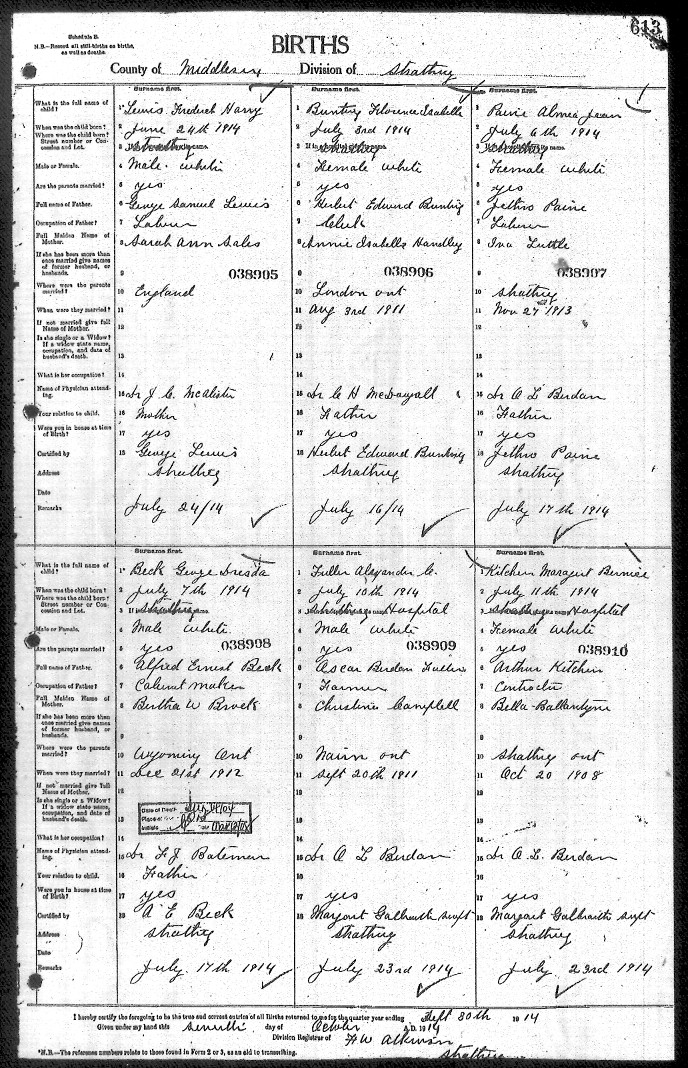 613
Schedule B.
N.B.—Record all still-births as births, as well as deaths.
BIRTHS
County of Middlesex Division of Strathroy
Surname first. Surname first. Surname first.
What is the full name of child? 1 Lewis Frederick Harry 1 Bunting Florence Isabella 1 Paine Almea Jean
When was the child born? 2 June 24th 1914 2 July 3rd 1914 2 July 6th 1914
Where was the child born? Street number or Concession and Lot. 3 Strathroy 3 Strathroy 3 Strathroy
Male or Female. 4 Male White 4 Female White 4 Female White
Are the parents married? 5 yes 5 yes 5 yes
Full name of Father. 6 George Samuel Lewis 6 Herbert Edward Bunting 6 Jethro Paine
Occupation of Father? 7 Labour 7 Clerk 7 Laborer
Full Maiden Name of Mother. 8 Sarah Ann Sales 8 Annie Isabella Handley 8 Iva Luttle
If she has been more than once married give names of former husband, or husbands. 9 038905 9 038906 9 038907
Where were the parents married? 10 England 10 London ont 10 Strathroy
When were they married? 11 11 Aug 3rd 1911 11 Nov 27th 1913
If not married give full Name of Mother. 12 12 12
Is she single or a Widow? If a widow state name, occupation, and date of husband's death. 13 13 13
What is her occupation? 14 14 14
Name of Physician attending. 15 Dr J. C. McAlister 15 Dr C H McDougall 15 Dr O L Berdan
Your relation to child. 16 Mother 16 Father 16 Father
Were you in house at time of Birth? 17 yes 17 yes 17 yes
Certified by 18 George Lewis 18 Herbert Edward Bunting 18 Jethro Paine
Address Strathroy Strathroy Strathroy
Date
Remarks July 24/14 July 16/14 July 17th 1914
Surname first. Surname first. Surname first.
What is the full name of child? 1 Beck George Dresda 1 Fuller Alexander C. 1 Kitchen Margaret Bernice
When was the child born? 2 July 7th 1914 2 July 10th 1914 2 July 11th 1914
Where was the child born? Street number or Concession and Lot. 3 Strathroy 3 Strathroy Hospital 3 Strathroy Hospital
Male or Female. 4 Male White 4 Male White 4 Female White
Are the parents married? 5 yes 038908 5 yes 038909 5 yes 038910
Full name of Father. 6 Alfred Ernest Beck 6 Oscar Berdan Fuller 6 Arthur Kitchen
Occupation of Father? 7 Cabinet maker 7 Farmer 7 Contractor
Full Maiden Name of Mother. 8 Bertha W Brock 8 Christine Campbell 8 Bella Ballantyne
If she has been more than once married give names of former husband, or husbands. 9 9 9
Where were the parents married? 10 Wyoming Ont 10 Nairn ont 10 Strathroy ont
When were they married? 11 Dec 21st 1912 11 Sept 20th 1911 11 Oct 20 1908
If not married give full Name of Mother. 12 12 12
Is she single or a Widow? If a widow state name, occupation, and date of husband's death. 13 Date of Death Place of 13 13
What is her occupation? 14 14 14
Name of Physician attending. 15 Dr F J Bateman 15 Dr O L Berdan 15 Dr O. L. Berdan
Your relation to child. 16 Father 16 16
Were you in house at time of Birth? 17 yes 17 yes 17 yes
Certified by 18 A E Beck 18 Margaret Galbraith supt 18 Margaret Galbraith supt
Address Strathroy Strathroy Strathroy
Date
Remarks July 17th 1914 July 23rd 1914 July 23rd 1914
I hereby certify the foregoing to be the true and correct entries of all Births returned to me for the quarter year ending Sept 30th 1914
Given under my hand this seventh day of October A.D. 1914
Division Registrar of F W Atkinson
Strathroy
*N.B.—The reference numbers relate to those found in Form 2 or 3, as an aid to transcribing.